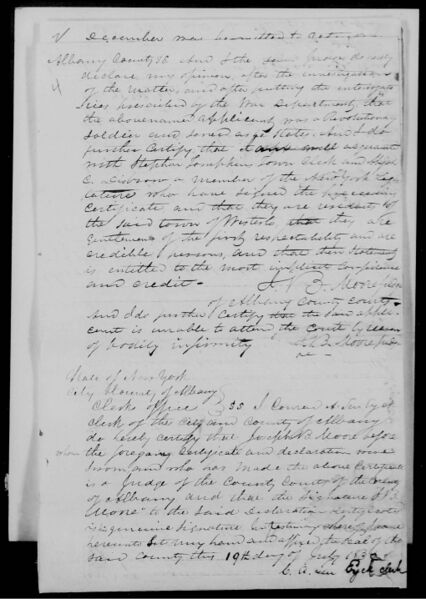 December was committed to
Albany County SS And I the said Judge do
declare my opinion, after the investigation
of the Matter, and after putting the interroga
tories prescribed by the War Department, that
the abovenamed applicant was a Revolutionary
Soldier and served as he states. And I do
further Certify that I am well acquaint
with Stephen Tompkins Town Clerk and
a member of the New York Leg
islature who have signed the preceeding
Certificate, and that they are resident of
the said town of Westerlo, that they are
Gentlemen of the first respectability and are
credible persons, and that their statement
is entitled to the most implicit Confidence
and credit. J. B. Moore
of Albany County court
And I do further Certify that the said appli
cant is unable to attend the Court by reason
of bodily infirmity J. B. Moore
State of New York
City & County of Albany
Clerks office SS I Conrad A. Ten Eyck
Clerk of the City and County of Albany
do hereby Certify that Joseph B Moore before
whom the foregoing Certificate and declaration were
Sworn and who has made the above Certificate
is a Judge of the County Court of the County
of Albany and that the Signature J B
Moore to the said Declaration
is genuine Signature In testimony whereof I have
hereunto Set my hand and affixed the Seal of the
said County this 19th day of July
C. A. Ten Eyck clerk